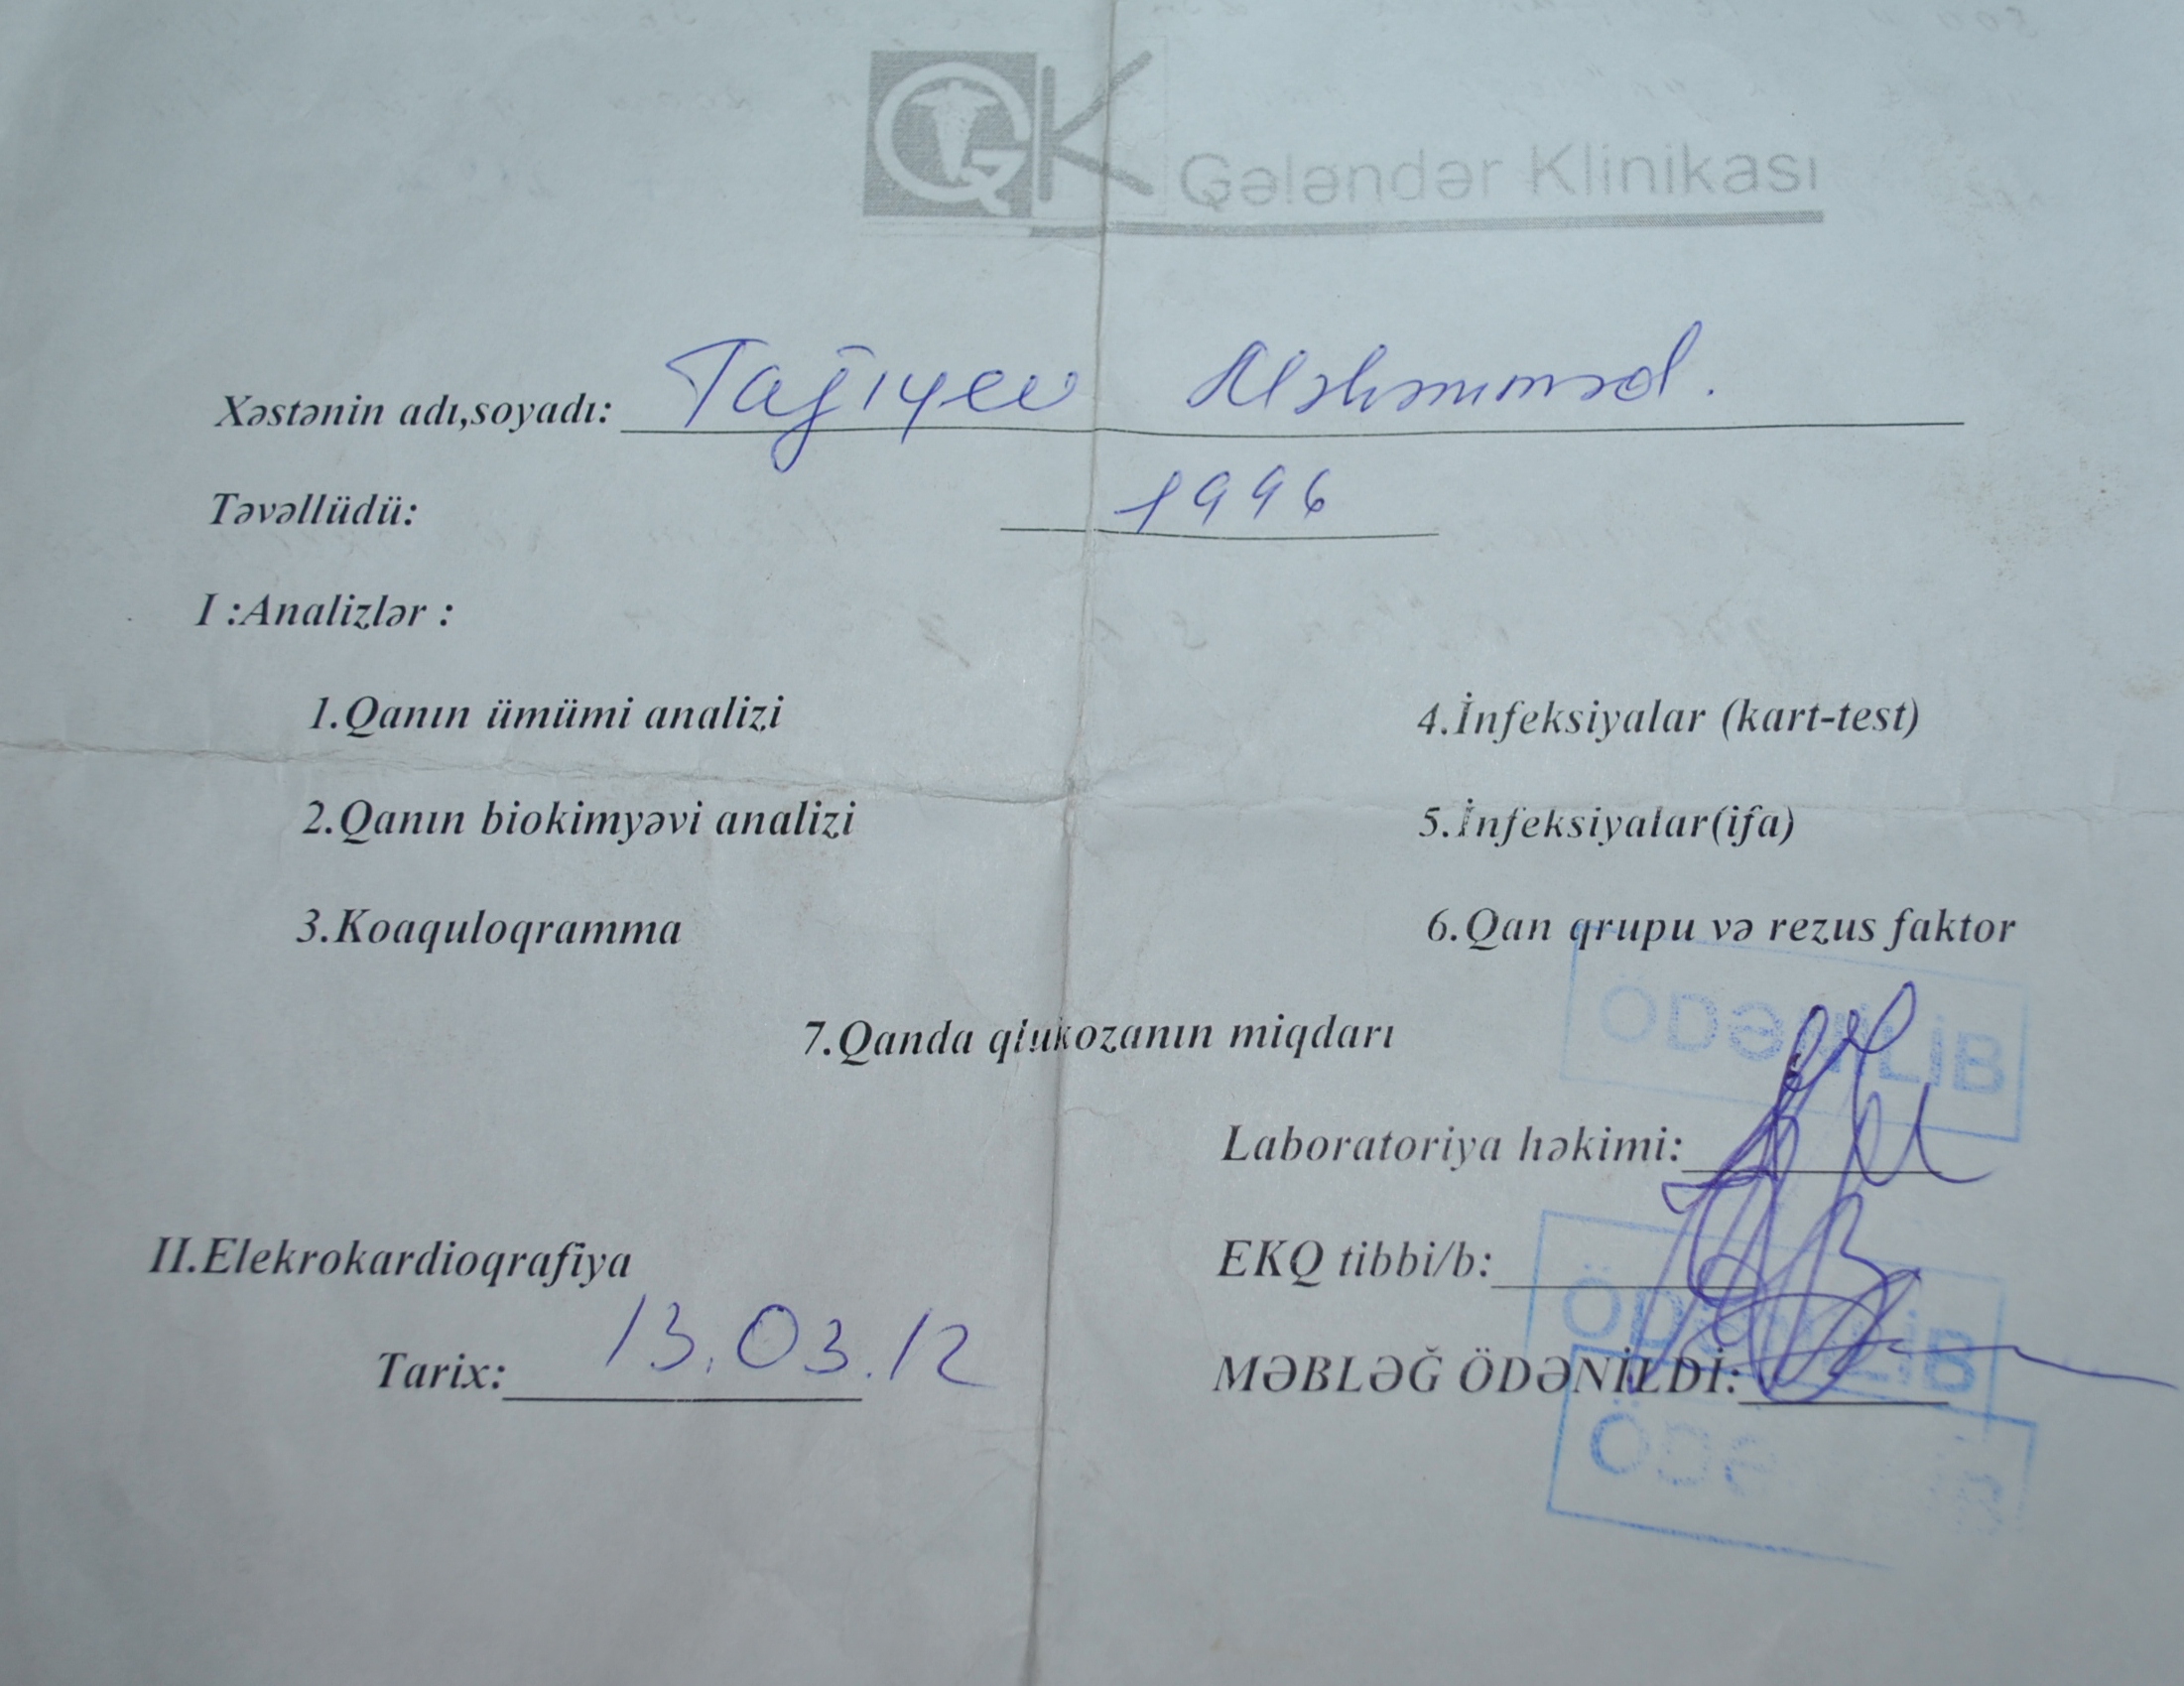 QK Qələndər Klinikası
Xəstənin adı,soyadı: Tağıyev Məhəmməd.
Təvəllüdü: 1996
I :Analizlər :
1.Qanın ümümi analizi
4.İnfeksiyalar (kart-test)
2.Qanın biokimyəvi analizi
5.İnfeksiyalar(ifa)
3.Koaquloqramma
6.Qan qrupu və rezus faktor
7.Qanda qlukozanın miqdarı
ÖDƏNİLİB
Laboratoriya həkimi:
II.Elekrokardioqrafiya
EKQ tibbi/b:
ÖDƏNİLİB
Tarix: 13.03.12
MƏBLƏĞ ÖDƏNİLDİ: